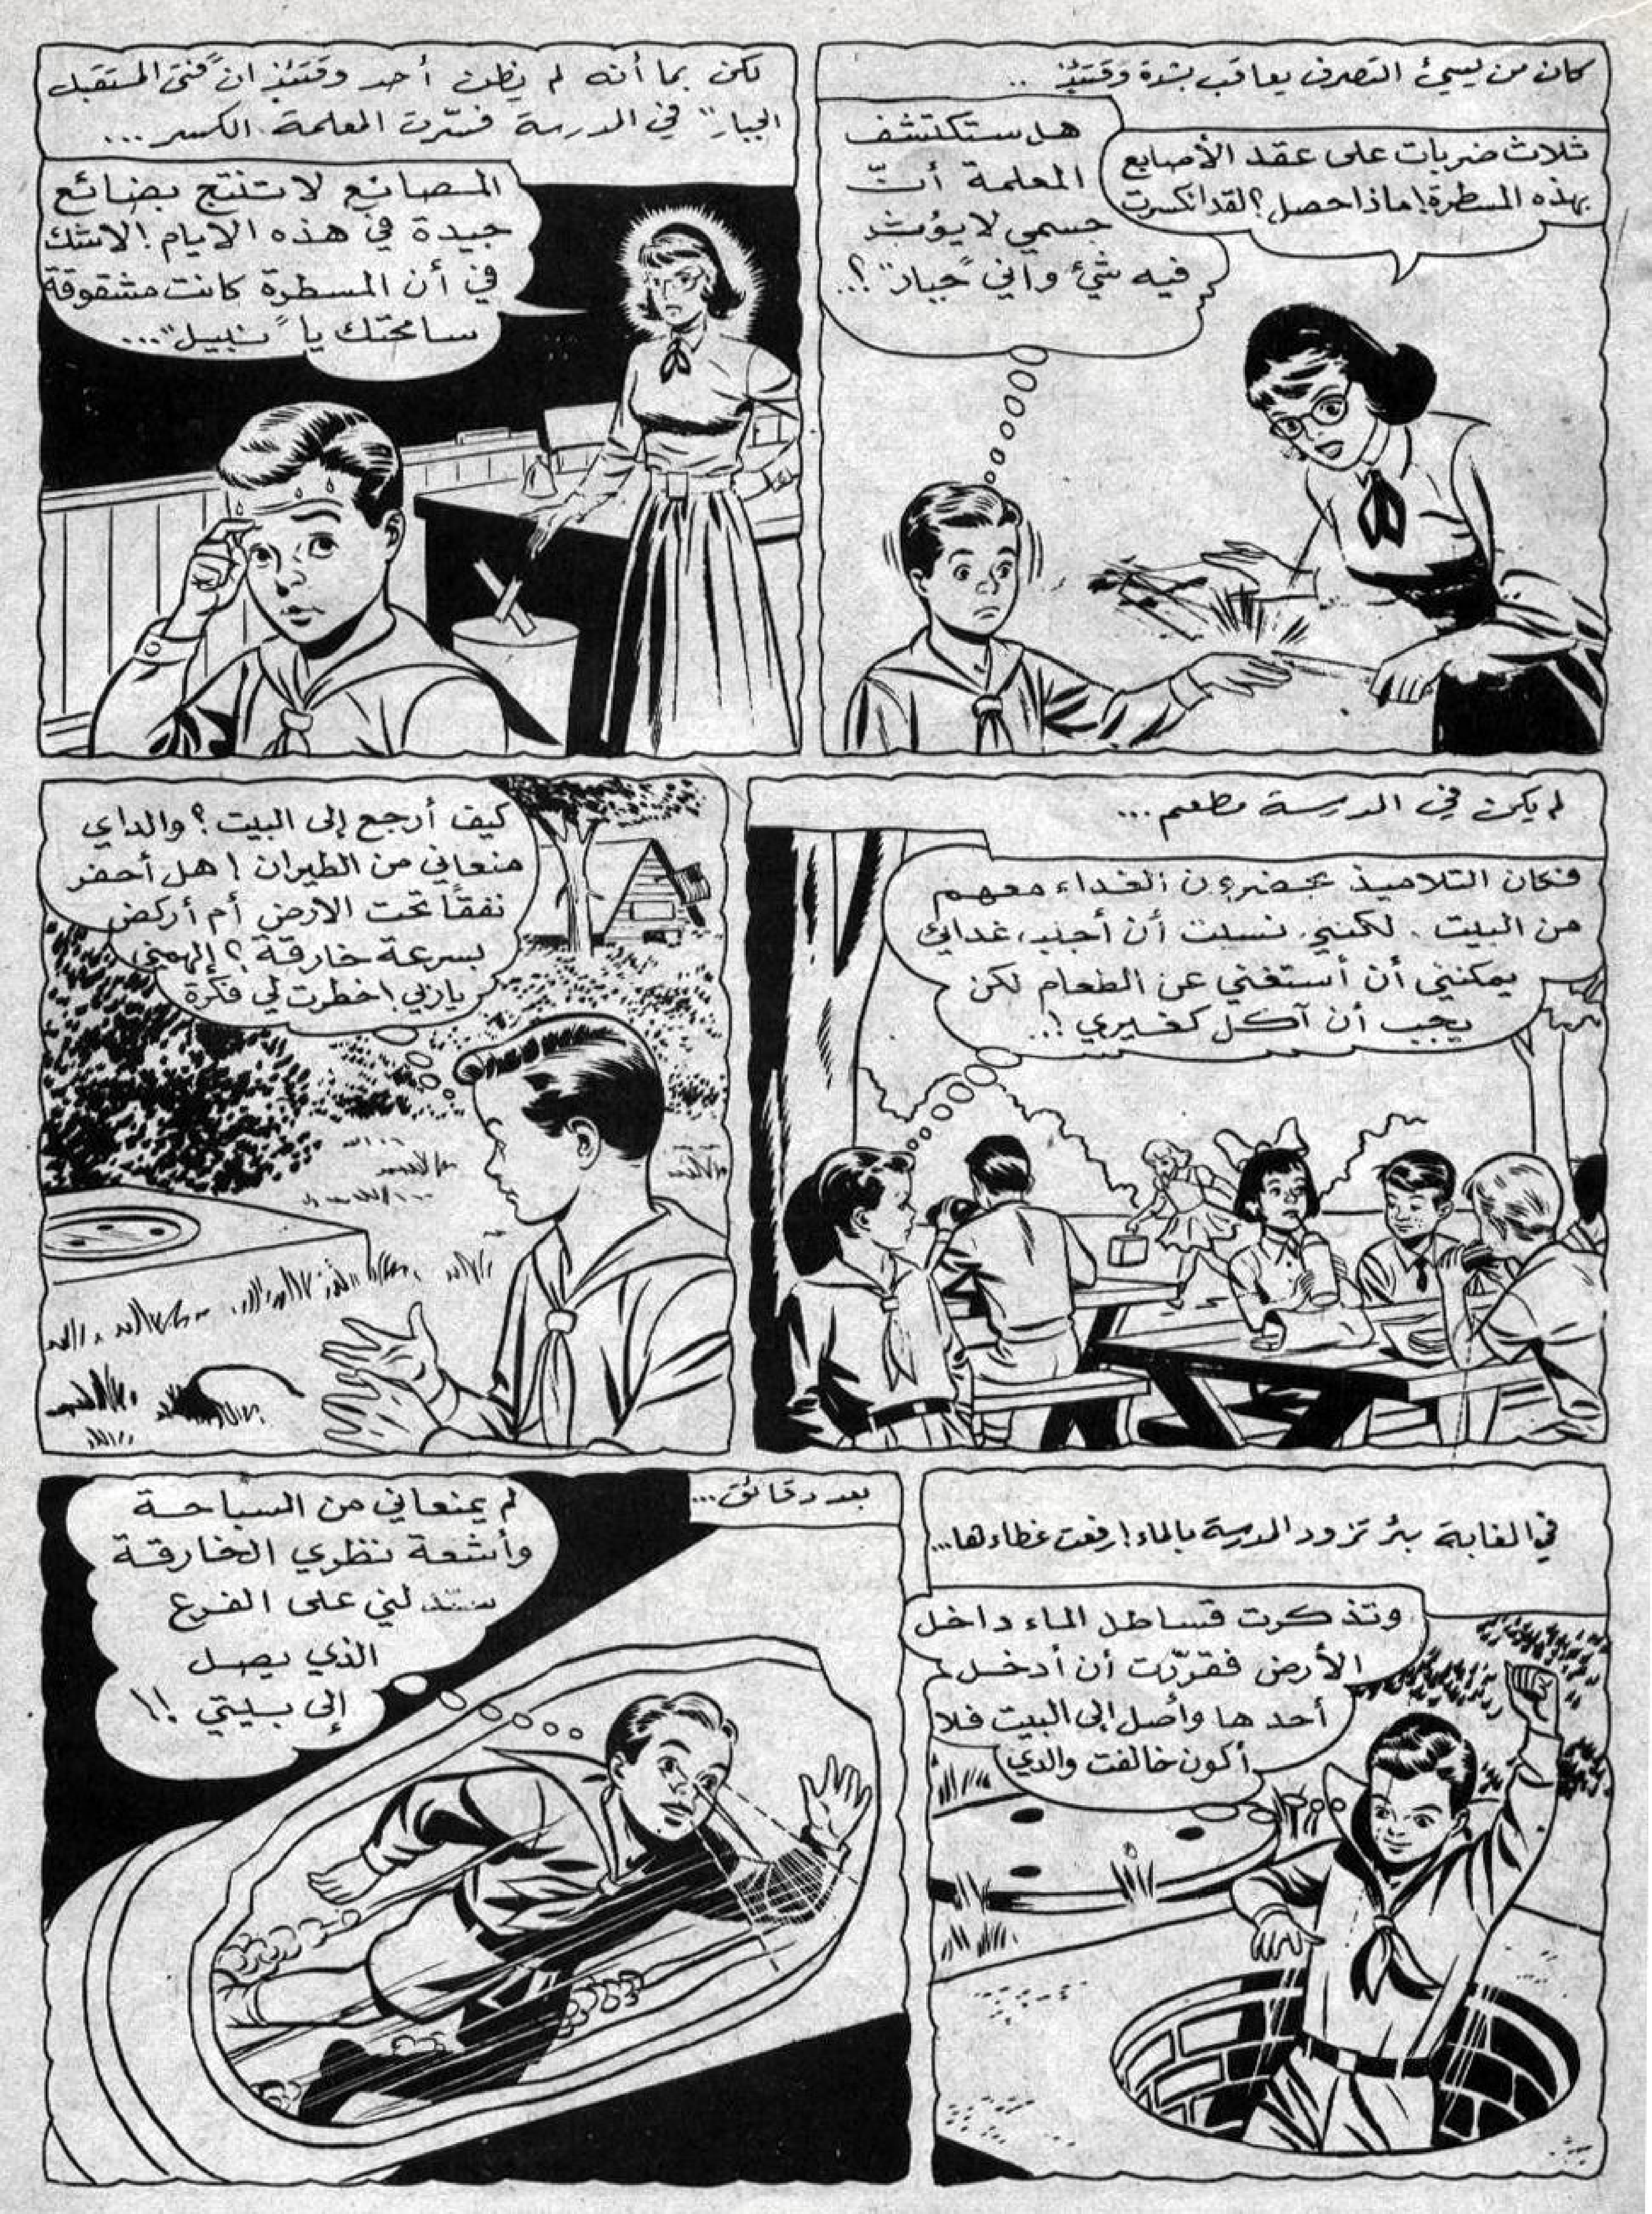 كان من يسيئ التصرف يعاقب بشدة وقتئذ ..
ثلاث ضربات على عقد الأصابع
بهذه المسطرة! ماذا حصل؟ لقد انكسرت
هل ستكتشف
المعلمة أنّ
جسمي لا يؤثر
فيه شئ واني "جبار"؟..
لكن بما أنه لم يظن أحد وقتئذ ان "فتى المستقبل
الجبار" في المدرسة فسّرت المعلمة الكسر...
المصانع لا تنتج بضائع
جيدة في هذه الايام! لا شك
في أن المسطرة كانت مشقوقة
سامحتك يا "نبيل"...
لم يكن في المدرسة مطعم...
فكان التلاميذ يحضرون الغداء معهم
من البيت. لكنني نسيت أن أجلب غدائي
يمكنني أن أستغني عن الطعام لكن
يجب أن آكل كغيري!..
كيف أرجع إلى البيت؟ والداي
منعاني من الطيران! هل أحفر
نفقاً تحت الارض أم أركض
بسرعة خارقة؟ إلهمني
يا ربي! خطرت لي فكرة
في الغابة بئر تزود المدرسة بالماء! رفعت غطاءها...
وتذكرت قساطل الماء داخل
الأرض فقررّت أن أدخل
أحدها وأصل إلى البيت فلا
أكون خالفت والدي
بعد دقائق...
لم يمنعاني من السباحة
وأشعة نظري الخارقة
ستدلني على الفرع
الذي يصل
إلى بيتي!!